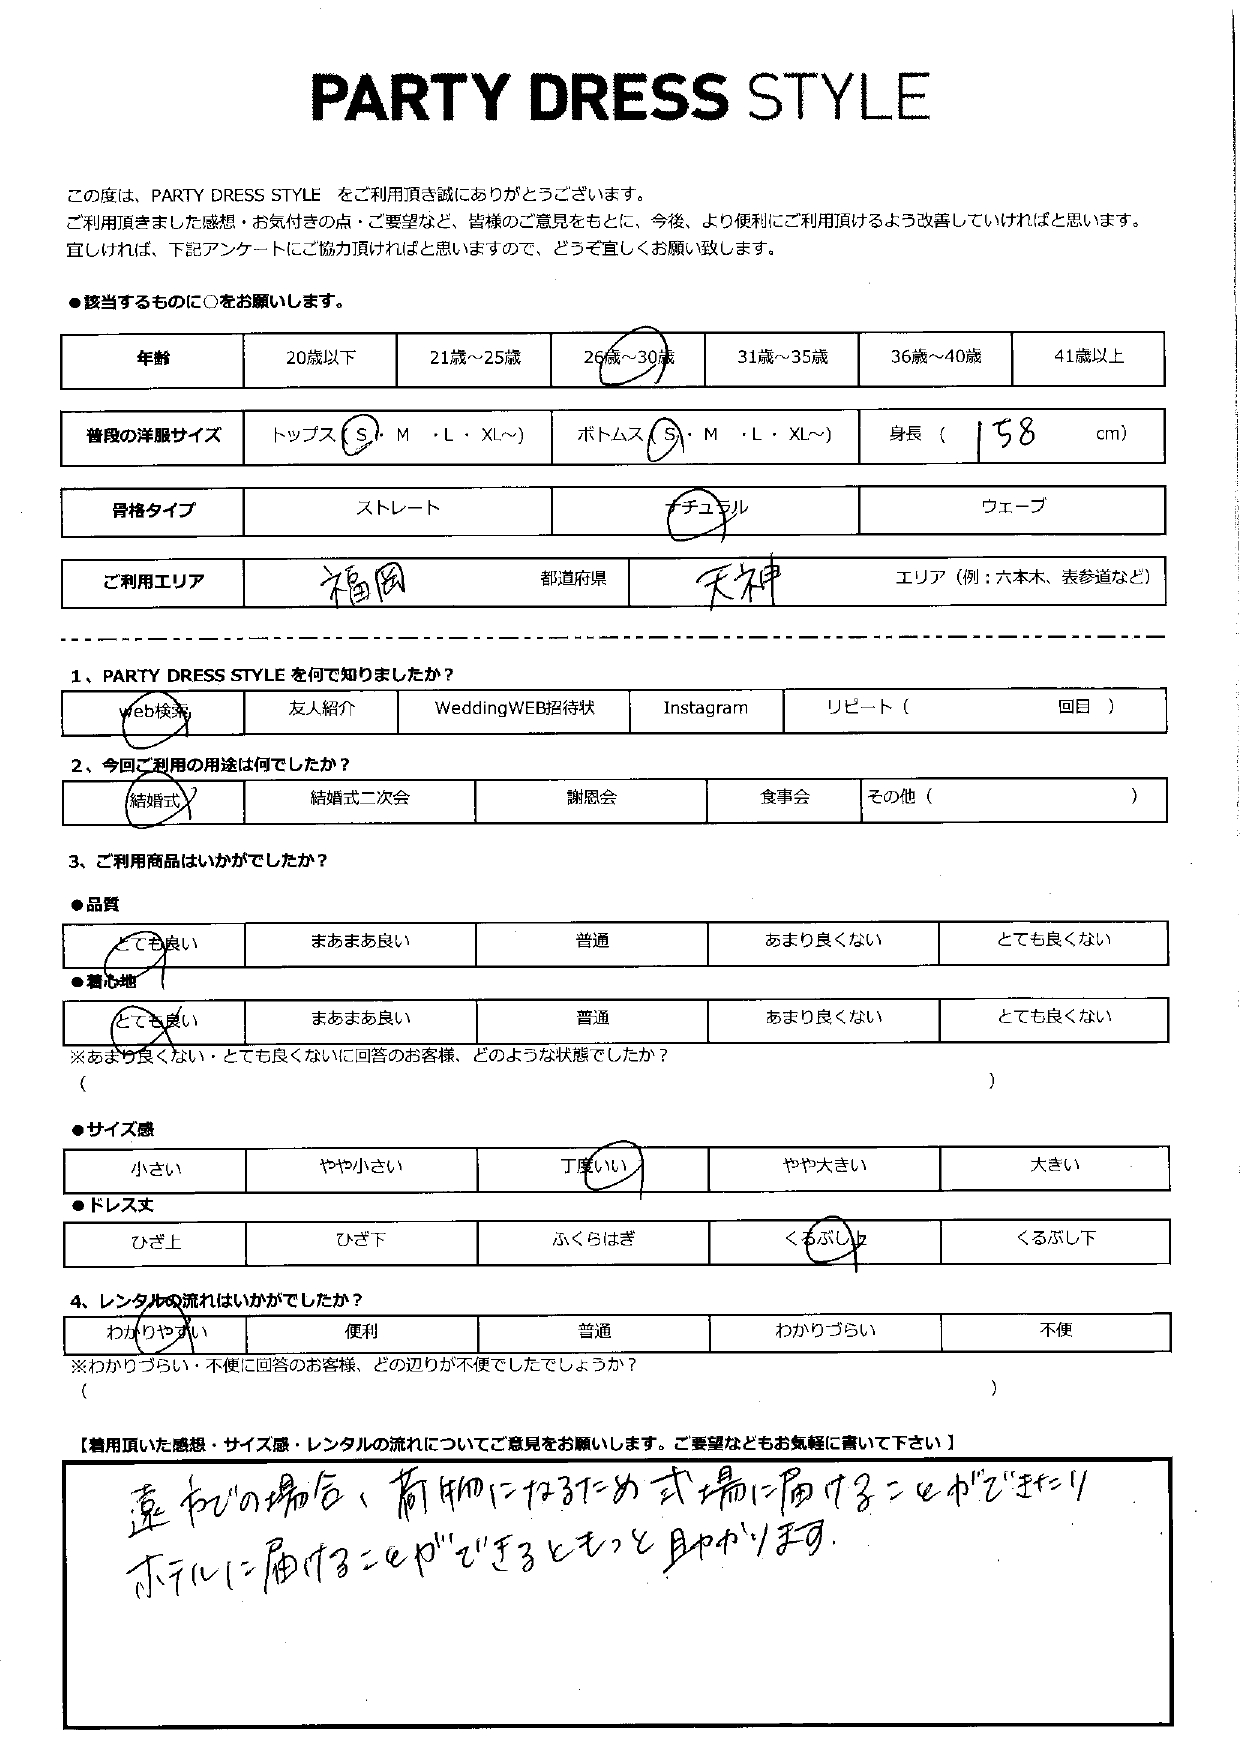 PARTY DRESS STYLE
この度は、PARTY DRESS STYLE をご利用頂き誠にありがとうございます。
ご利用頂きました感想・お気付きの点・ご要望など、皆様のご意見をもとに、今後、より便利にご利用頂けるよう改善していければと思います。
宜しければ、下記アンケートにご協力頂ければと思いますので、どうぞ宜しくお願い致します。
●該当するものに○をお願いします。
年齢 20歳以下 21歳～25歳 26歳～30歳 31歳～35歳 36歳～40歳 41歳以上
普段の洋服サイズ トップス(S・ M ・L・ XL～) ボトムス(S・ M ・L・ XL～) 身長 ( 158 cm)
骨格タイプ ストレート ナチュラル ウェーブ
ご利用エリア 福岡 都道府県 天神 エリア（例：六本木、表参道など）
1、PARTY DRESS STYLE を何で知りましたか？
web検索 友人紹介 WeddingWEB招待状 Instagram リピート（ 回目 ）
2、今回ご利用の用途は何でしたか？
結婚式 結婚式二次会 謝恩会 食事会 その他（ ）
3、ご利用商品はいかがでしたか？
●品質
とても良い まあまあ良い 普通 あまり良くない とても良くない
●着心地
とても良い まあまあ良い 普通 あまり良くない とても良くない
※あまり良くない・とても良くないに回答のお客様、どのような状態でしたか？
（ ）
●サイズ感
小さい やや小さい 丁度いい やや大きい 大きい
●ドレス丈
ひざ上 ひざ下 ふくらはぎ くるぶし上 くるぶし下
4、レンタルの流れはいかがでしたか？
わかりやすい 便利 普通 わかりづらい 不便
※わかりづらい・不便に回答のお客様、どの辺りが不便でしたでしょうか？
（ ）
【着用頂いた感想・サイズ感・レンタルの流れについてご意見をお願いします。ご要望などもお気軽に書いて下さい】
遠方での場合、荷物になるため式場に届けることができたり
ホテルに届けることができるともっと助かります.